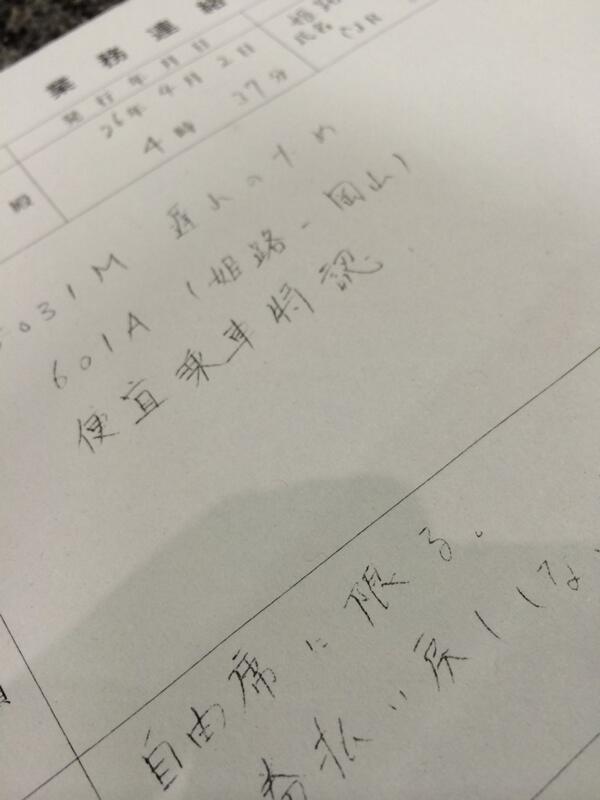 業務連絡
発行年月日
26年4月2日
4時37分
姫路
氏名
殿
5031M 遅れのため
601A (姫路-岡山)
便宜乗車特認
自由席に限る。
払い戻ししな